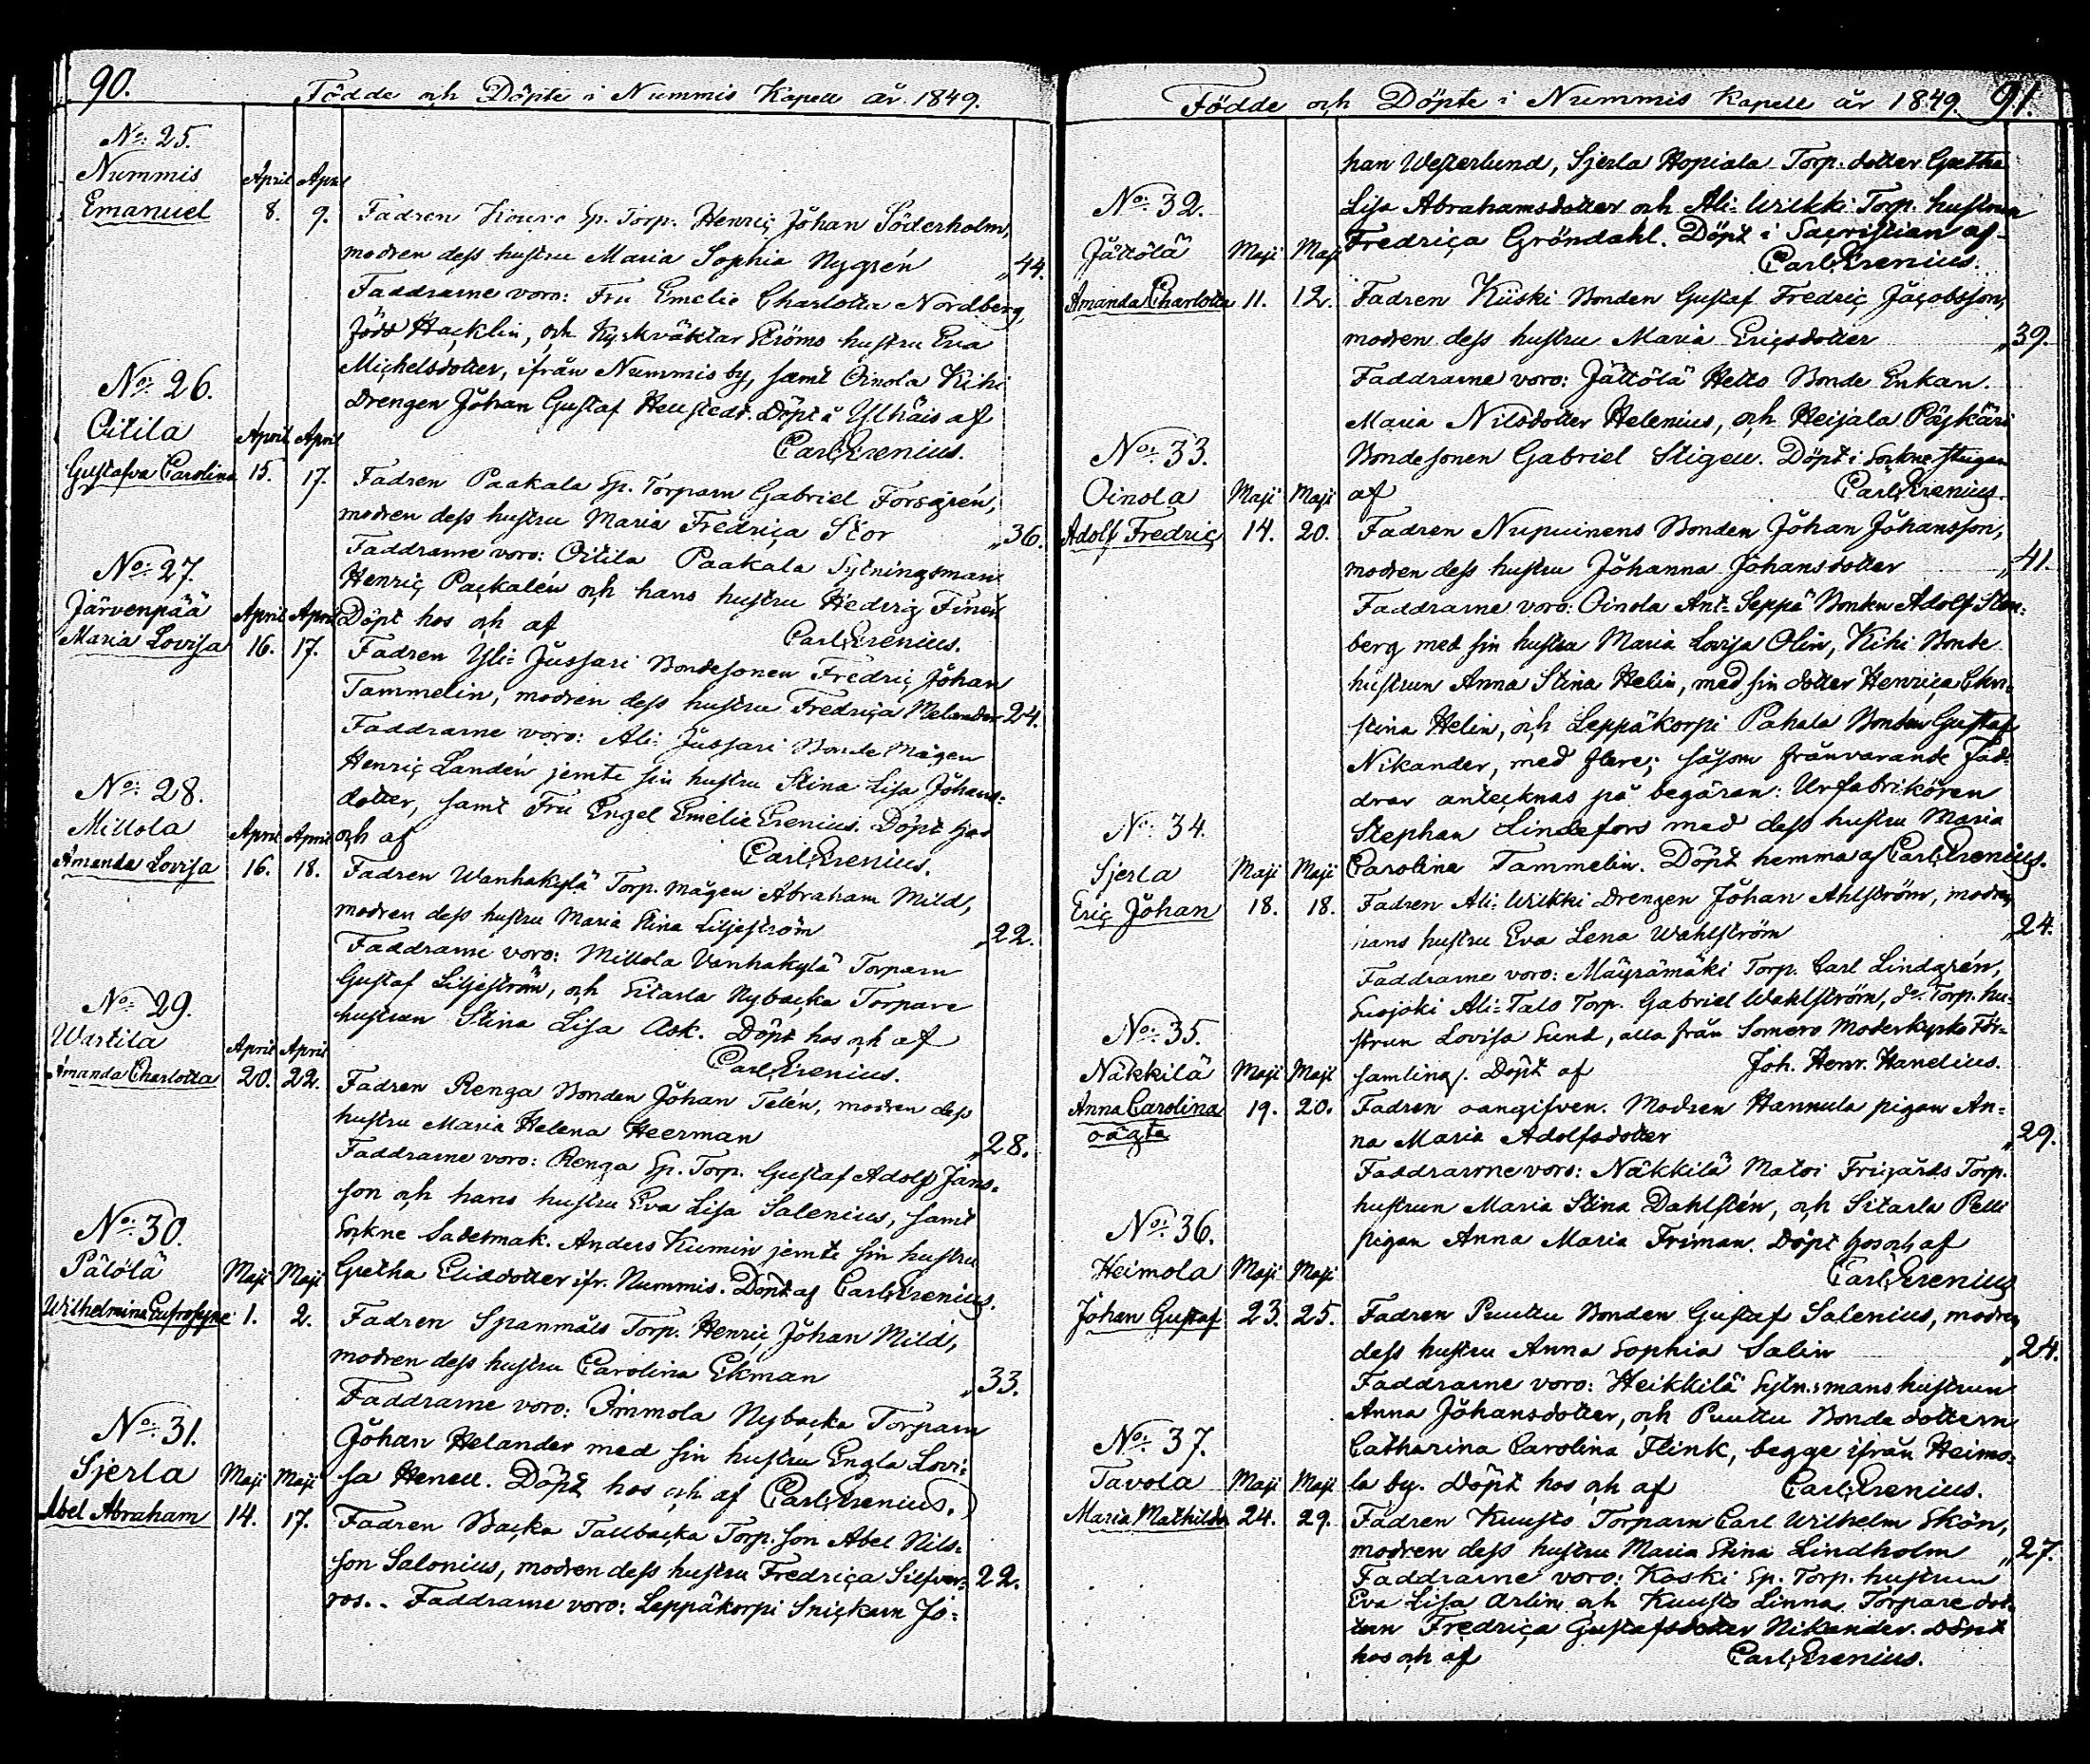 90.
Födde och Döpte i Nummis Kapell år 1849.
No: 25.
Nummis April April
Emanuel 8. 9. Fadren Kouvo Sp. Torp. Henriç Johan Söderholm,
modren dess hustru Maria Sophia Nygrén „44.
Faddrarne voro: Fru Emelie Charlotta Nordberg,
född Hacklin, och Kyrkväktar Ströms hustru Eva
Michelsdotter, ifrån Nummis by, samt Oinola Kihi
Drengen Johan Gustaf Hellstedt. Döpt i Ylhäis af
Carl Erenius.
No: 26.
Oitila April April
Gustafva Carolina 15. 17. Fadren Paakala Sp. Torparn Gabriel Forsgrén,
modren dess hustru Maria Fredriça Stor „36.
Faddrarne voro: Oitila Paakala Sytningsman
Henriç Packalén och hans hustru Hedvig
Döpt hos och af Carl Erenius.
No: 27.
Järvenpää April April
Maria Lovisa 16. 17. Fadren Yli-Jussari Bondesonen Fredriç Johan
Tammelin, modren dess hustru Fredriça Melander 24.
Faddrarne voro: Ali-Jussari Bonde Mågen
Henriç Landén jemte sin hustru Stina Lisa Johans-
dotter, samt Fru Engel Emelie Erenius. Döpt hos
och af Carl Erenius.
No: 28.
Millola April April
Amanda Lovisa 16. 18. Fadren Wanhakylä Torp. mågen Abraham Mild,
modren dess hustru Maria Stina Liljeström „22.
Faddrarne voro: Millola Vanhakylä Torparn
Gustaf Liljeström, och Sitarla Nybacka Torpare
hustrun Stina Lisa Ask. Döpt hos och af
Carl Erenius.
No: 29.
Wartila April April
Amanda Charlotta 20. 22. Fadren Renga Bonden Johan Telén, modren dess
hustru Maria Helena Heerman „28.
Faddrarne voro: Renga Sp. Torp. Gustaf Adolf Jans-
son och hans hustru Eva Lisa Salenius, samt
Sockne Sadelmak. Anders Kumin jemte sin hustru
Gretha Elidsdotter ifr. Nummis. Döpt af Carl Erenius.
No: 30.
Pätölä Maji Maji
Wilhelmina Eufrosyne 1. 2. Fadren Spanmäls Torp. Henriç Johan Mild,
modren dess hustru Carolina Ekman „33.
Faddrarne voro: Immola Nybacka Torparn
Johan Helander med sin hustru Engla Lovi-
sa Henell. Döpt hos och af Carl Erenius.
No: 31.
Sjerla Maji Maji
Abel Abraham 14. 17. Fadren Backa Tallbacka Torp. son Abel Nils-
son Salonius, modren dess hustru Fredriça Silfver- 22.
ros.. Faddrarne voro: Leppäkorpi Snickarn Jo-
91.
Födde och Döpte i Nummis Kapell år 1849.
han Westerlund, Sjerla Hopiala Torp. dotter Gretha
Lisa Abrahamsdotter och Ali-Wilkki Torp. hustrun
Fredriça Gröndahl. Döpt i Sacristian af
Carl Erenius.
No: 32.
Jättölä Maji Maji
Amanda Charlotta 11. 12. Fadren Kiiski Bonden Gustaf Fredriç Jacobsson,
modren dess hustru Maria Ericsdotter „39.
Faddrarne voro: Jättölä Helto Bonde Enkan
Maria Nilsdotter Helenius, och Heijala Päykäri
Bondesonen Gabriel Stigell. Döpt i Sockne stugan
af Carl Erenius.
No: 33.
Oinola Maji Maji
Adolf Fredriç 14. 20. Fadren Nupuinens Bonden Johan Johansson,
modren dess hustru Johanna Johansdotter „41.
Faddrarne voro: Oinola Ant-Seppä Bonden Adolf Sten-
berg med sin hustru Maria Lovisa Olin, Kihi Bonde
hustrun Anna Stina Helin, med sin dotter Henriça Chri-
stina Helin, och Leppäkorpi Pahala Bonden Gustaf
Nikander, med flere; såsom frånvarande Fad-
drar antecknas på begäran: Urfabrikören
Stephan Lindefors med dess hustru Maria
Carolina Tammelin. Döpt hemma af Carl Erenius.
No: 34.
Sjerla Maji Maji
Eriç Johan 18. 18. Fadren Ali-Wilkki Drengen Johan Ahlström, modren
hans hustru Eva Lena Wahlström „24.
Faddrarne voro: Mäyrämäki Torp. Carl Lindgrén,
Suojoki Ali-Talo Torp. Gabriel Wahlström, do Torp. hu-
strun Lovisa Sund, alla från Somero Moderkyrko För-
samling. Döpt af Joh. Henr. Hanelius.
No: 35.
Näkkilä Maji Maji
Anna Carolina 19. 20. Fadren oangifven. Modren Hannula pigan An-
oägta na Maria Adolfsdotter „29.
Faddrarne voro: Näkkilä Matoi Frigårds Torp.
hustrun Maria Stina Dahlstén, och Sitarla Pelli
pigan Anna Maria Friman. Döpt hos och af
Carl Erenius
No: 36.
Heimola Maji Maji
Johan Gustaf 23. 25. Fadren Puuttu Bonden Gustaf Salenius, modren
dess hustru Anna Sophia Salin „24.
Faddrarne voro: Heikkilä Sytn:smans hustrun
Anna Johansdotter, och Puuttu Bonde dottern
Catharina Carolina Flink, begge ifrån Heimo-
la by. Döpt hos och af Carl Erenius.
No: 37.
Tavola Maji Maji
Maria Mathilda 24. 29. Fadren Kuusto Torparn Carl Wilhelm Skön,
modren dess hustru Maria Stina Lindholm „27.
Faddrarne voro: Koski Sp. Torp. hustrun
Eva Lisa Arlin och Kuusto Linna Torpare dot-
tern Fredriça Gustafsdotter Nikander. Döpt
hos och af Carl Erenius.